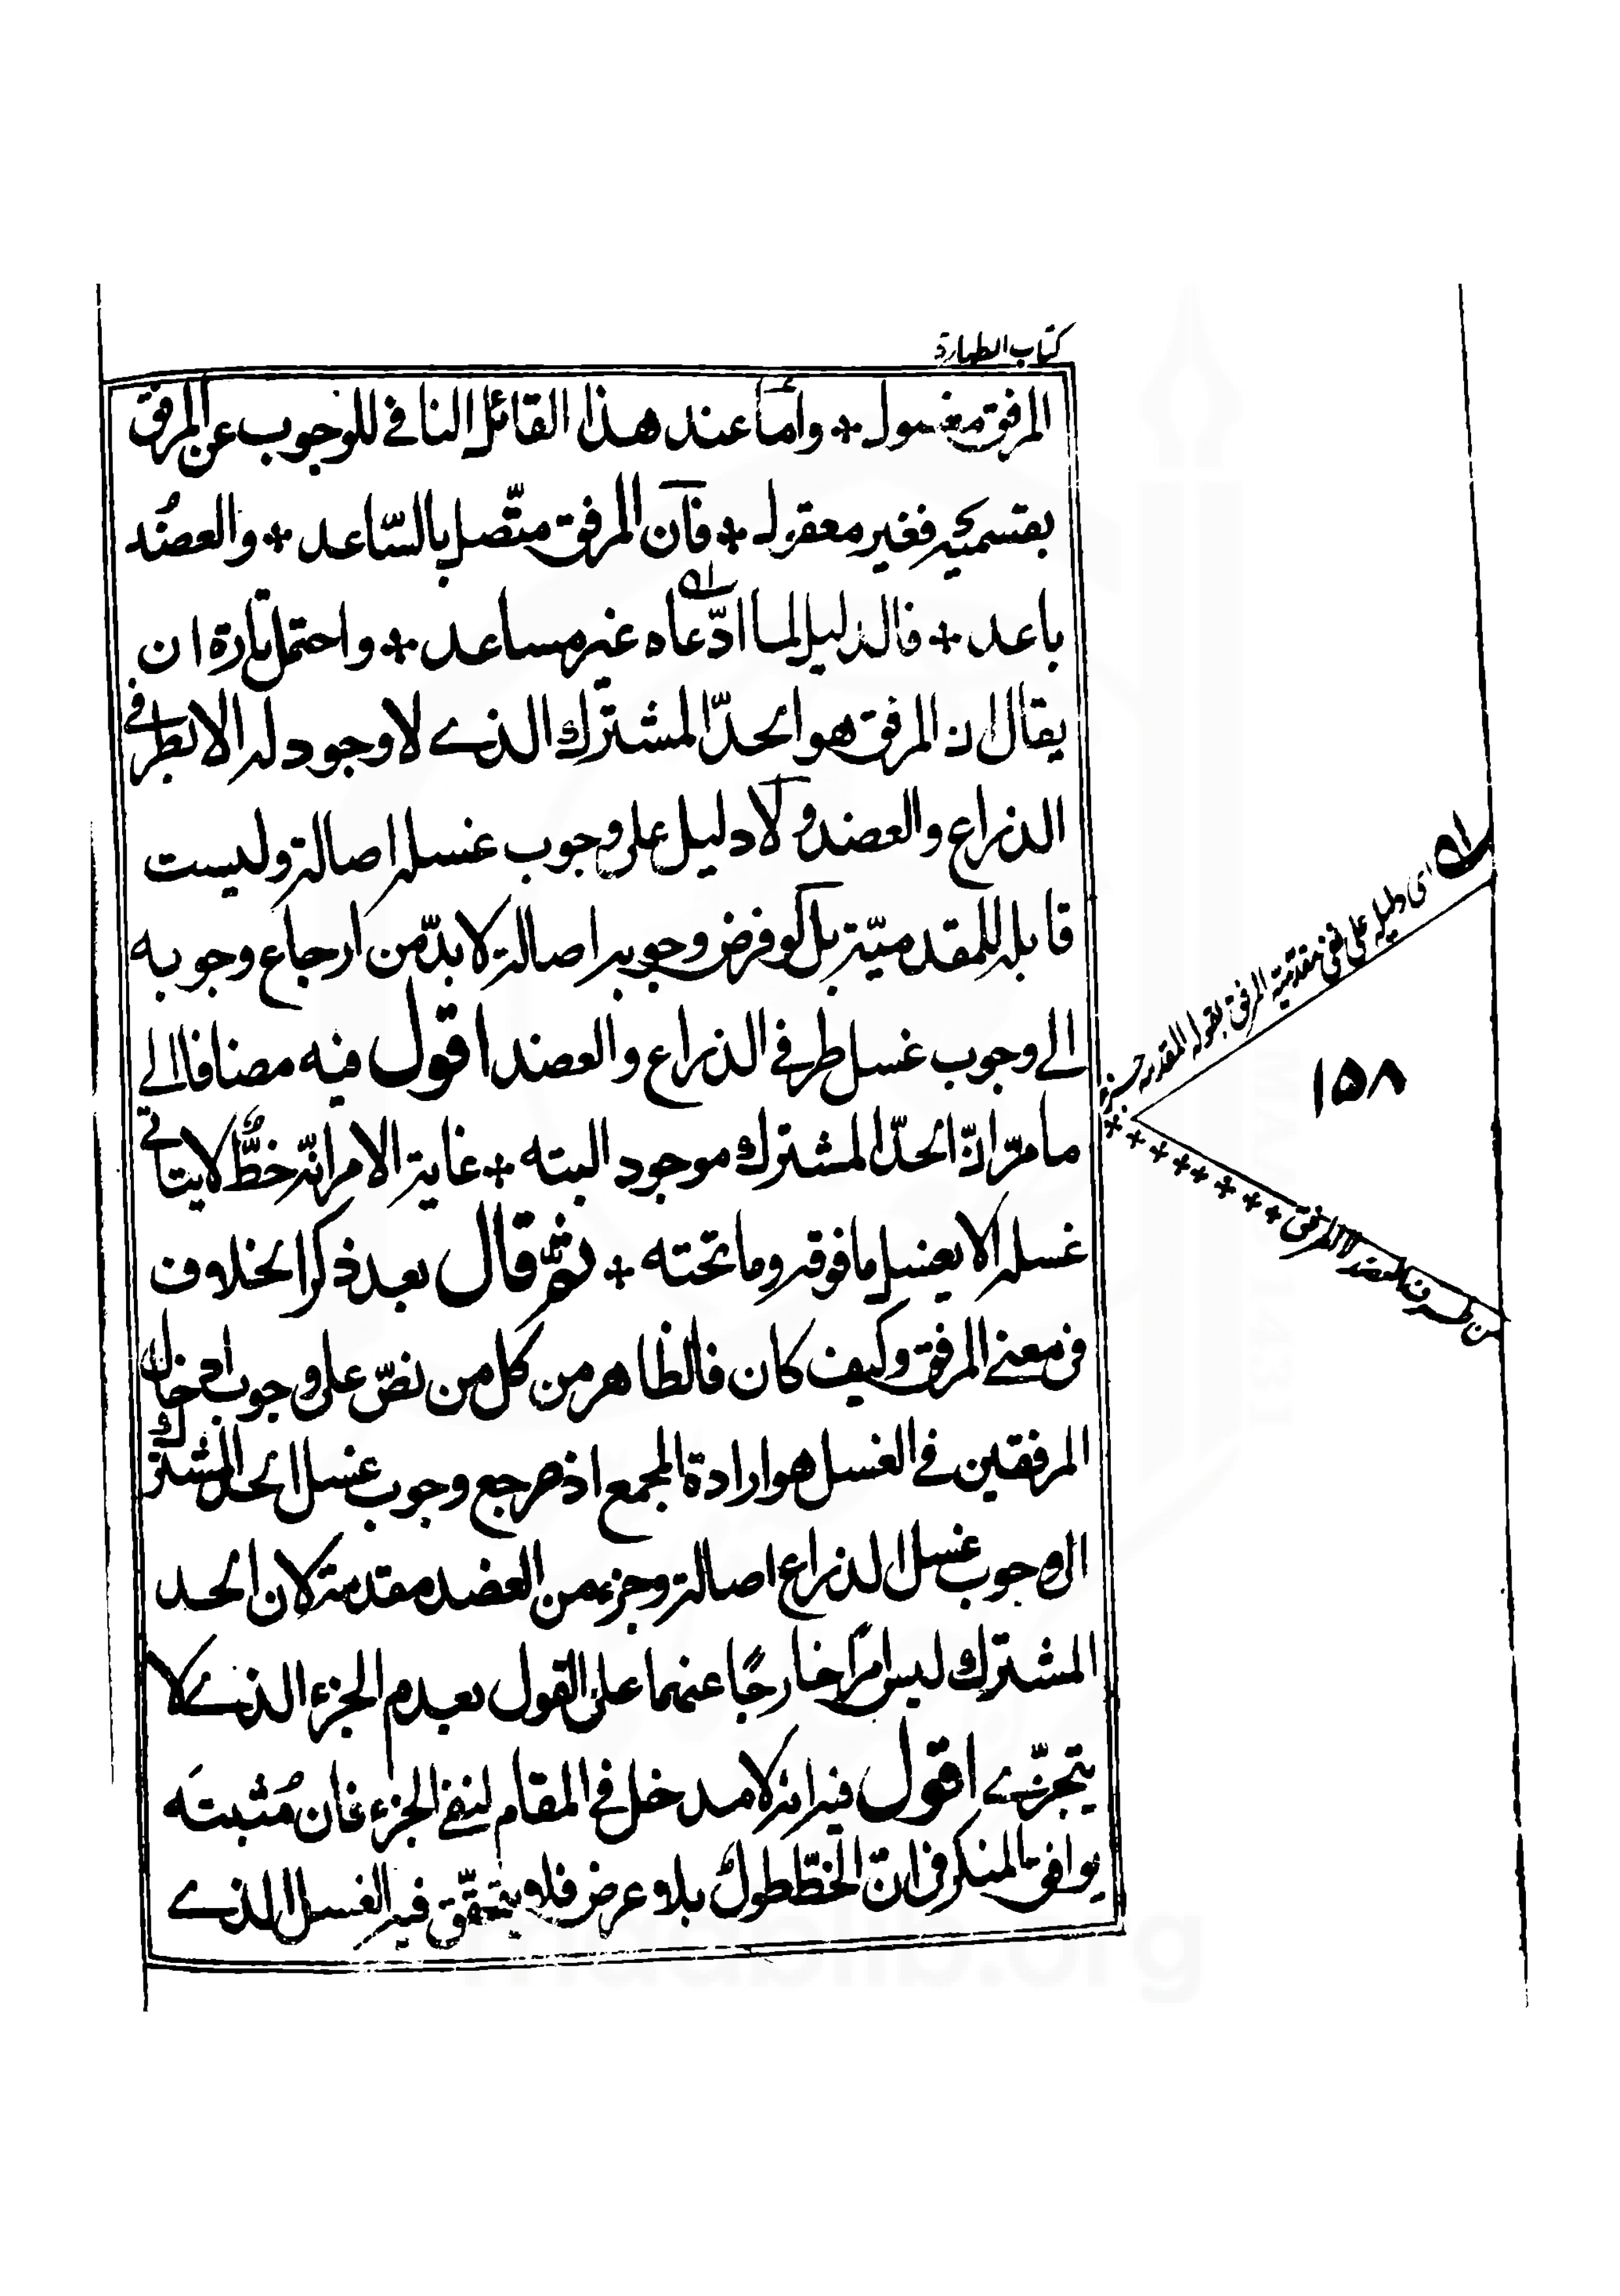 كتاب الطهارة
المرفق مغسول * وأمّا عند هذا القائل النافي للوجوب عن المرفق
بقسميه فغير معقول * فانّ المرفق متّصل بالسّاعد * والعضُد
باعد * فالدليل لما ادّعاه غير مساعد * واحتمل تارة ان
يقال ان المرفق هو الحدّ المشترك الذي لا وجود له الا بطرفي
الذراع والعضد ولا دليل على وجوب غسله اصالة وليست
قابله للمقدميّة بل لو فرض وجوبه اصالة لابدّ من ارجاع وجوبه
الى وجوب غسل طرفي الذراع والعضد اقول فيه مضافا الى
ما مرّ انّ الحدّ المشترك موجود البته * غاية الامر انّه خطٌّ لا يتاتى
غسله الا بغسل ما فوقه وما تحته * ثمّ قال بعد ذكر الخلاف
في معنى المرفق وكيف كان فالظاهر من كل من نصّ على وجوب ادخال
المرفقين في الغسل هو ارادة المجمع اذ مرجع وجوب غسل الحد المشترك
الى وجوب غسل الذراع اصالة وجزء من العضد مقدمة لان الحد
المشترك ليس امرًا خارجًا عنهما على القول بعدم الجزء الذي لا
يتجزّى اقول فيه انه لا مدخل في المقام لنفي الجزء فان مُثبتَه
يوافق المنكر في انّ الخطّ طول بلا عرض فلا يتحقّق فيه الغسل الذي
اى دليله على نفى مقدمية المرفق بقوله المقدمه جزء
من طرف العضد لا المرفق
١٥٨